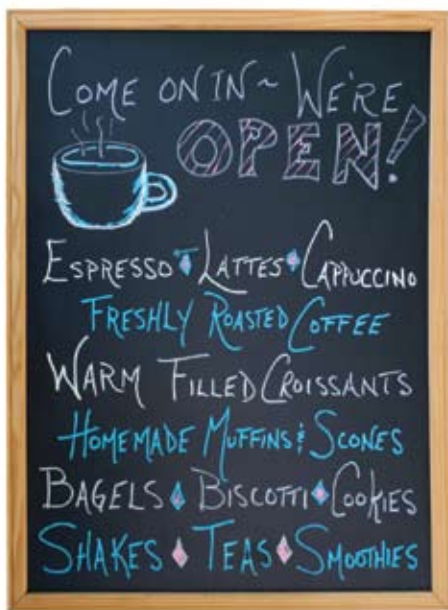 COME ON IN ~ WE'RE
OPEN!
ESPRESSO LATTES CAPPUCCINO
FRESHLY ROASTED COFFEE
WARM FILLED CROISSANTS
HOMEMADE MUFFINS & SCONES
BAGELS BISCOTTI COOKIES
SHAKES TEAS SMOOTHIES